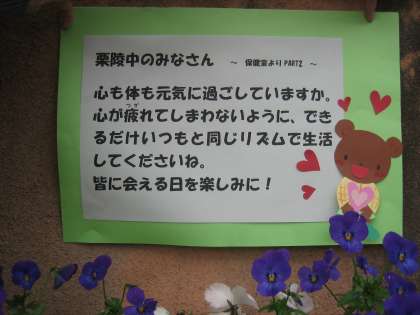 栗陵中のみなさん ～ 保健室より PART2 ～
心も体も元気に過ごしていますか。
心が疲れてしまわないように、でき
るだけいつもと同じリズムで生活
してくださいね。
皆に会える日を楽しみに！